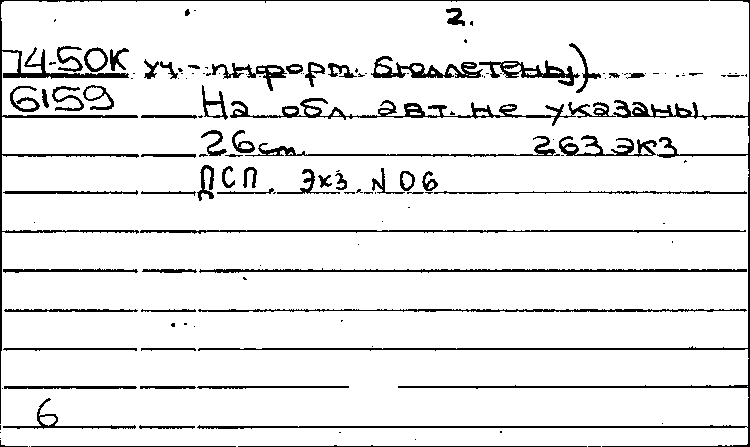 2.
74-50К уч.-информ. бюллетень)
6159 На обл. авт. не указаны.
26 cm. 263 экз
ДСП. Экз. N 06
6